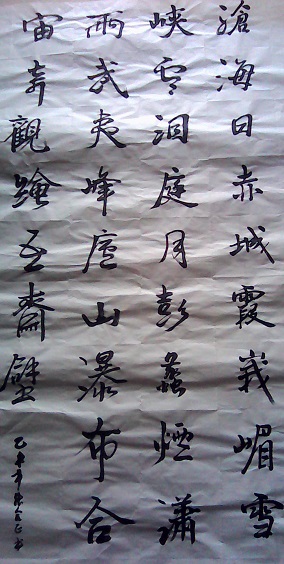 滄海日赤城霞峨嵋雪
峽雲洞庭月彭蠡煙瀟
雨武夷峰廬山瀑布合
宙奇觀吾齋壁
乙未年書